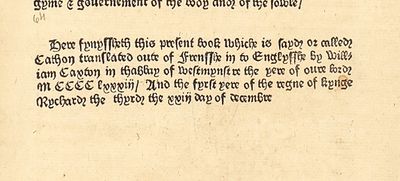 gyme & gouernement of the body and of the sowle/
Here fynyssheth this present book whiche is sayd or called
Cathon translated oute of Frensshe in to Englysshe by Will-
iam Caxton in thabbay of westmynstre the yere of oure lord
M CCCC lxxxiij/ And the fyrst yere of the regne of kynge
Rychard the thyrd the xxiij day of decembre